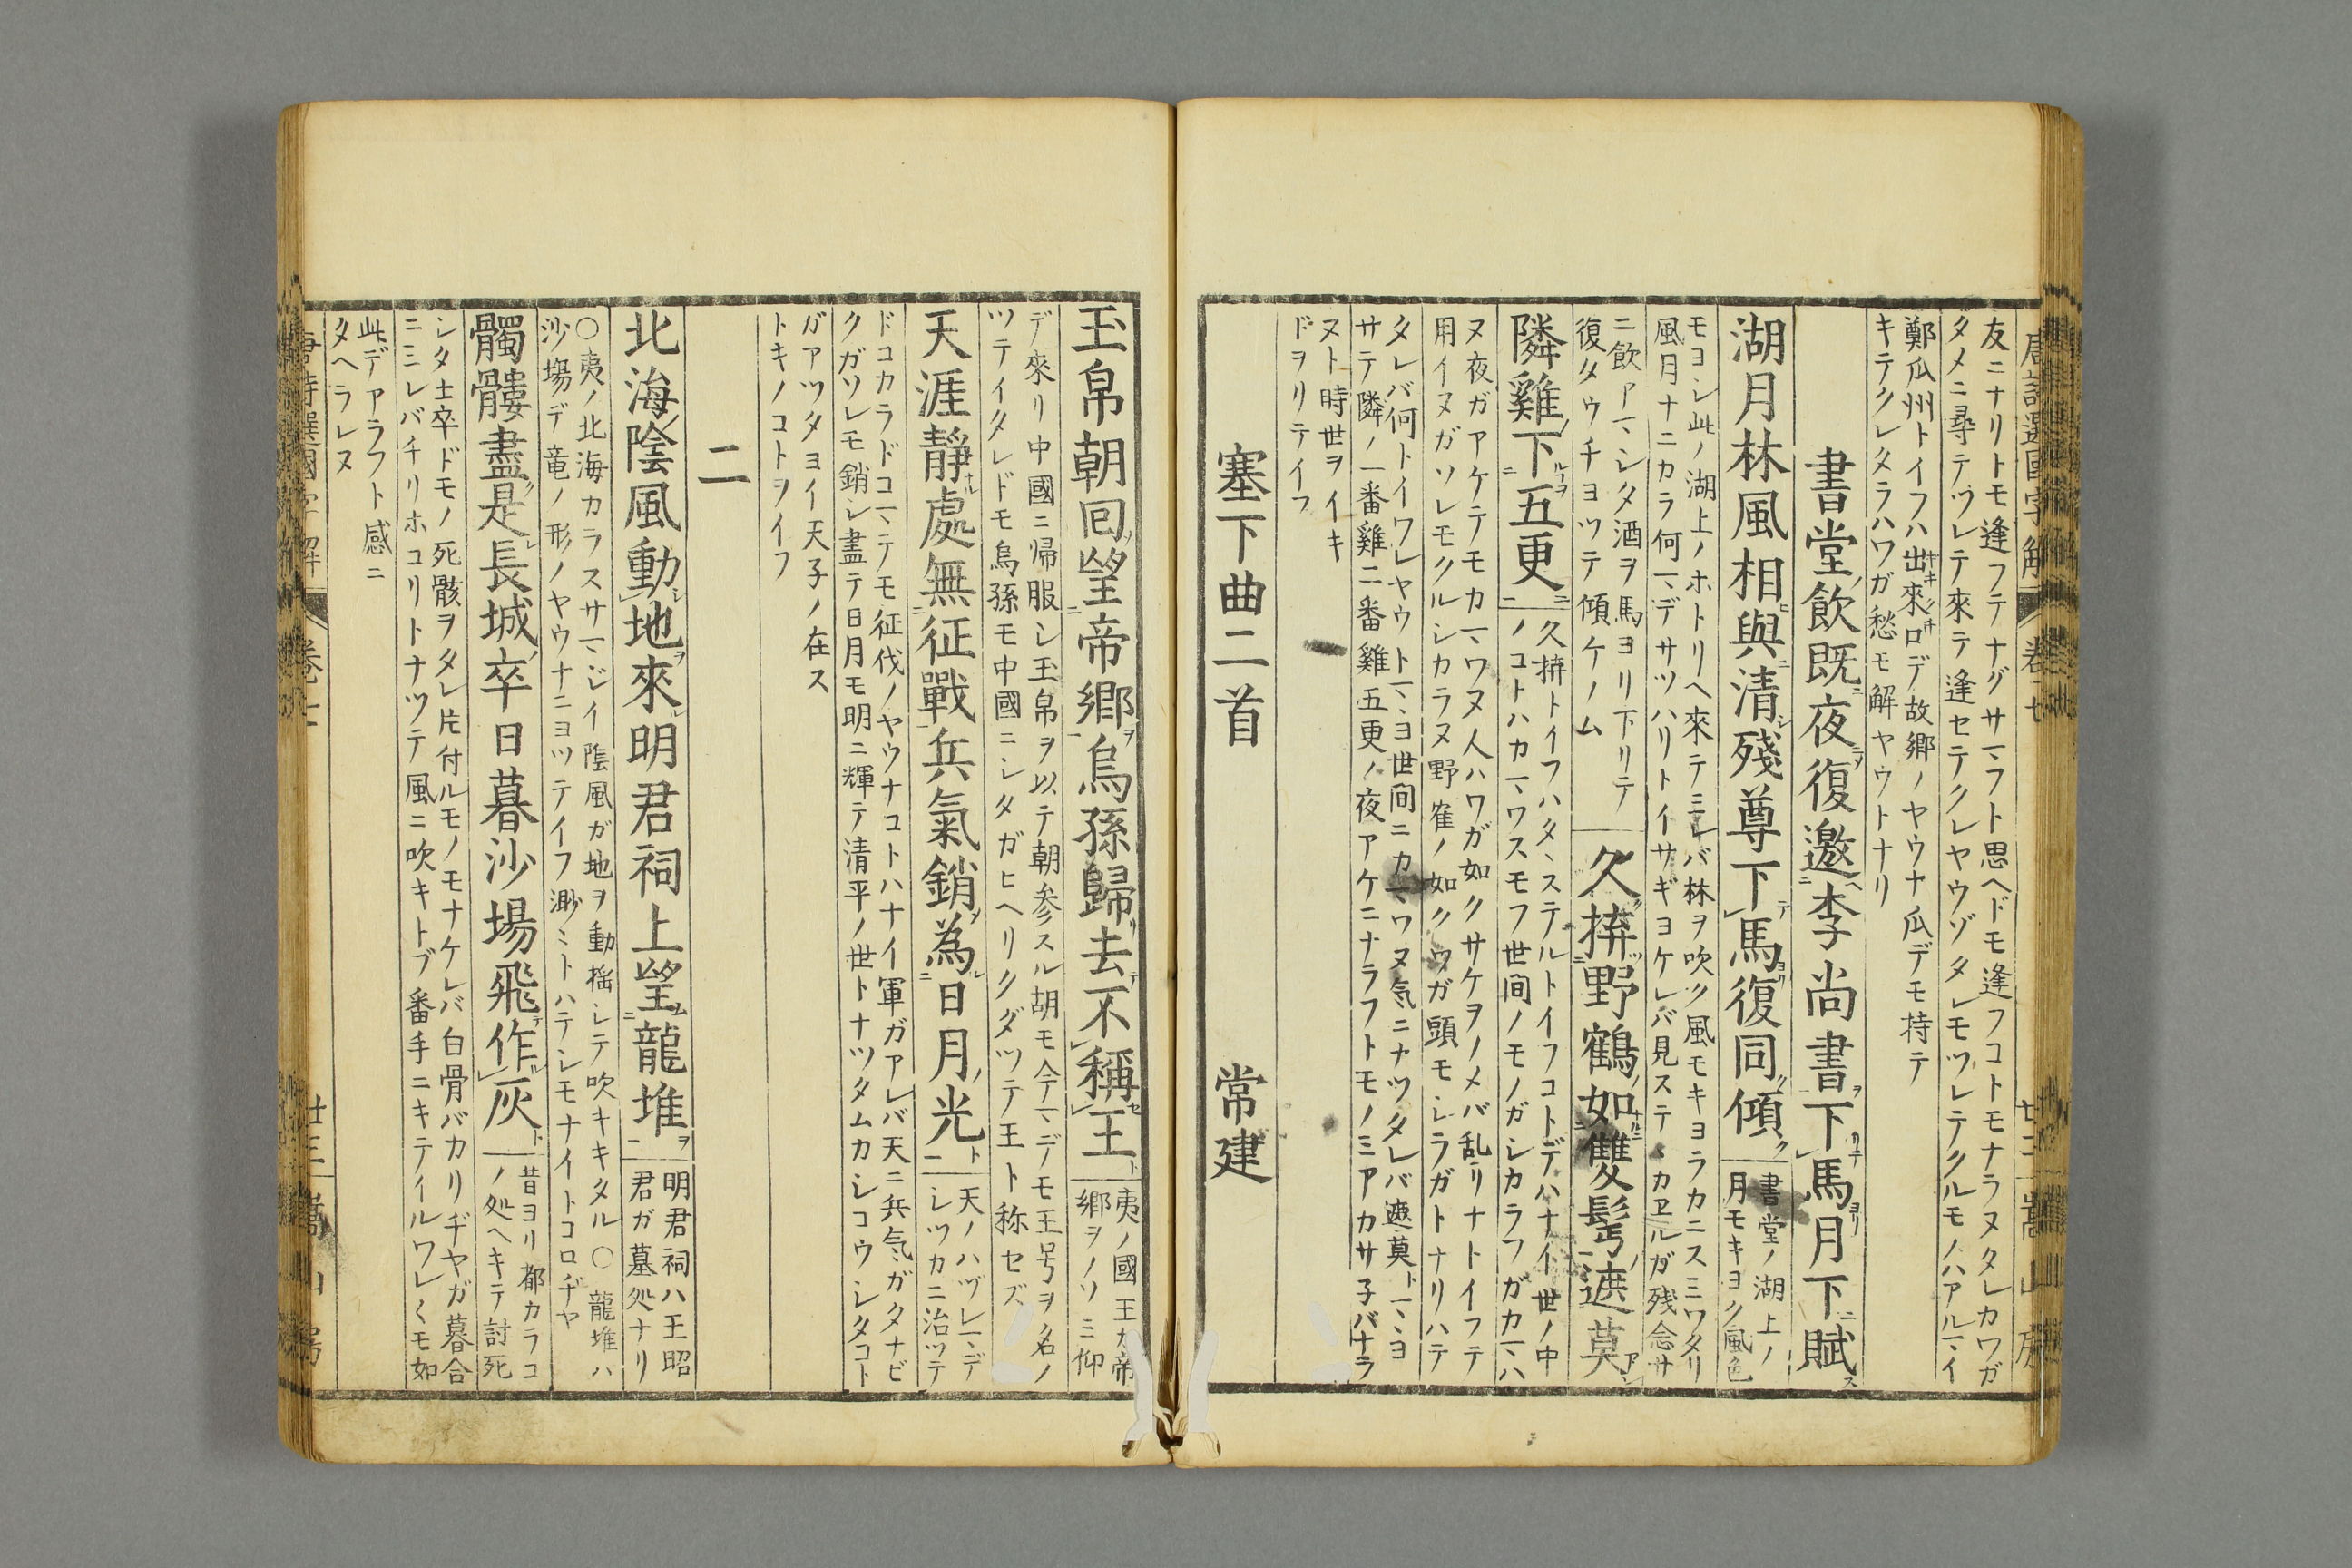 友ニナリトモ逢フテナグサマフト思ヘドモ逢フコトモナラヌタレカワガ
タメニ尋テツレテ來テ逢セテクレヤウゾタレモツレテクルモノハアルマイ
鄭瓜州トイフハ出來口デ故郷ノヤウナ瓜デモ持テ
キテクレタラハワガ愁モ解ヤウトナリ
書堂飲既夜復邀李尚書下馬月下賦
湖月林風相與清殘尊下馬復同傾
書堂ノ湖上ノ
月モキヨク風色
モヨシ此ノ湖上ノホトリヘ來テミレバ林ヲ吹ク風モキヨラカニスミワタリ
風月ナニカラ何マデサツハリトイサギヨケレバ見ステヽカヱルガ残念サ
ニ飲アマシタ酒ヲ馬ヨリ下リテ
復タウチヨツテ傾ケノム
久拚野鶴如雙髩遮莫
隣雞下五更
久拚トイフハタヽステルトイフコトデハナイ世ノ中
ノコトハカマワスモフ世間ノモノガシカラフガカマハ
ヌ夜ガアケテモカマワヌ人ハワガ如クサケヲノメバ乱リナトイフテ
用イヌガソレモクルシカラヌ野寉ノ如クワガ頭モシラガトナリハテ
タレバ何トイワレヤウトマヽヨ世間ニカマワヌ気ニナツタレバ遮莫トマヽヨ
サテ隣ノ一番雞二番雞五更ノ夜アケニナラフトモノミアカサ子バナラ
ヌト時世ヲイキ
ドヲリテイフ
塞下曲二首　常建
玉帛朝回望帝鄉烏孫歸去不稱王
夷ノ國王カ帝
郷ヲノソミ仰
デ來リ中國ニ帰服シ玉帛ヲ以テ朝参スル胡モ今マデモ王号ヲ名ノ
ツテイタレドモ烏孫モ中國ニシタガヒヘリクダツテ王ト称セズ
天涯靜處無征戰兵氣銷為日月光
天ノハヅレマデ
シツカニ治ツテ
ドコカラドコマテモ征伐ノヤウナコトハナイ軍ガアレバ天ニ兵気ガタナビ
クガソレモ銷シ盡テ日月モ明ニ輝テ清平ノ世トナツタムカシコウシタコト
ガアツタヨイ天子ノ在ス
トキノコトヲイフ
二
北海陰風動地來明君祠上望龍堆
明君祠ハ王昭
君ガ墓処ナリ
〇夷ノ北海カラスサマジイ陰風ガ地ヲ動揺シテ吹キキタル〇龍堆ハ
沙場デ竜ノ形ノヤウナニヨツテイフ渺ミトハテシモナイトコロヂヤ
髑髏盡是長城卒日暮沙場飛作灰
昔ヨリ都カラコ
ノ処ヘキテ討死
シタ士卒ドモノ死骸ヲタレ片付ルモノモナケレバ白骨バカリヂヤガ暮合
ニミレバチリホコリトナツテ風ニ吹キトブ番手ニキテイルワレ〱モ如
此デアラフト感ニ
タヘラレヌ